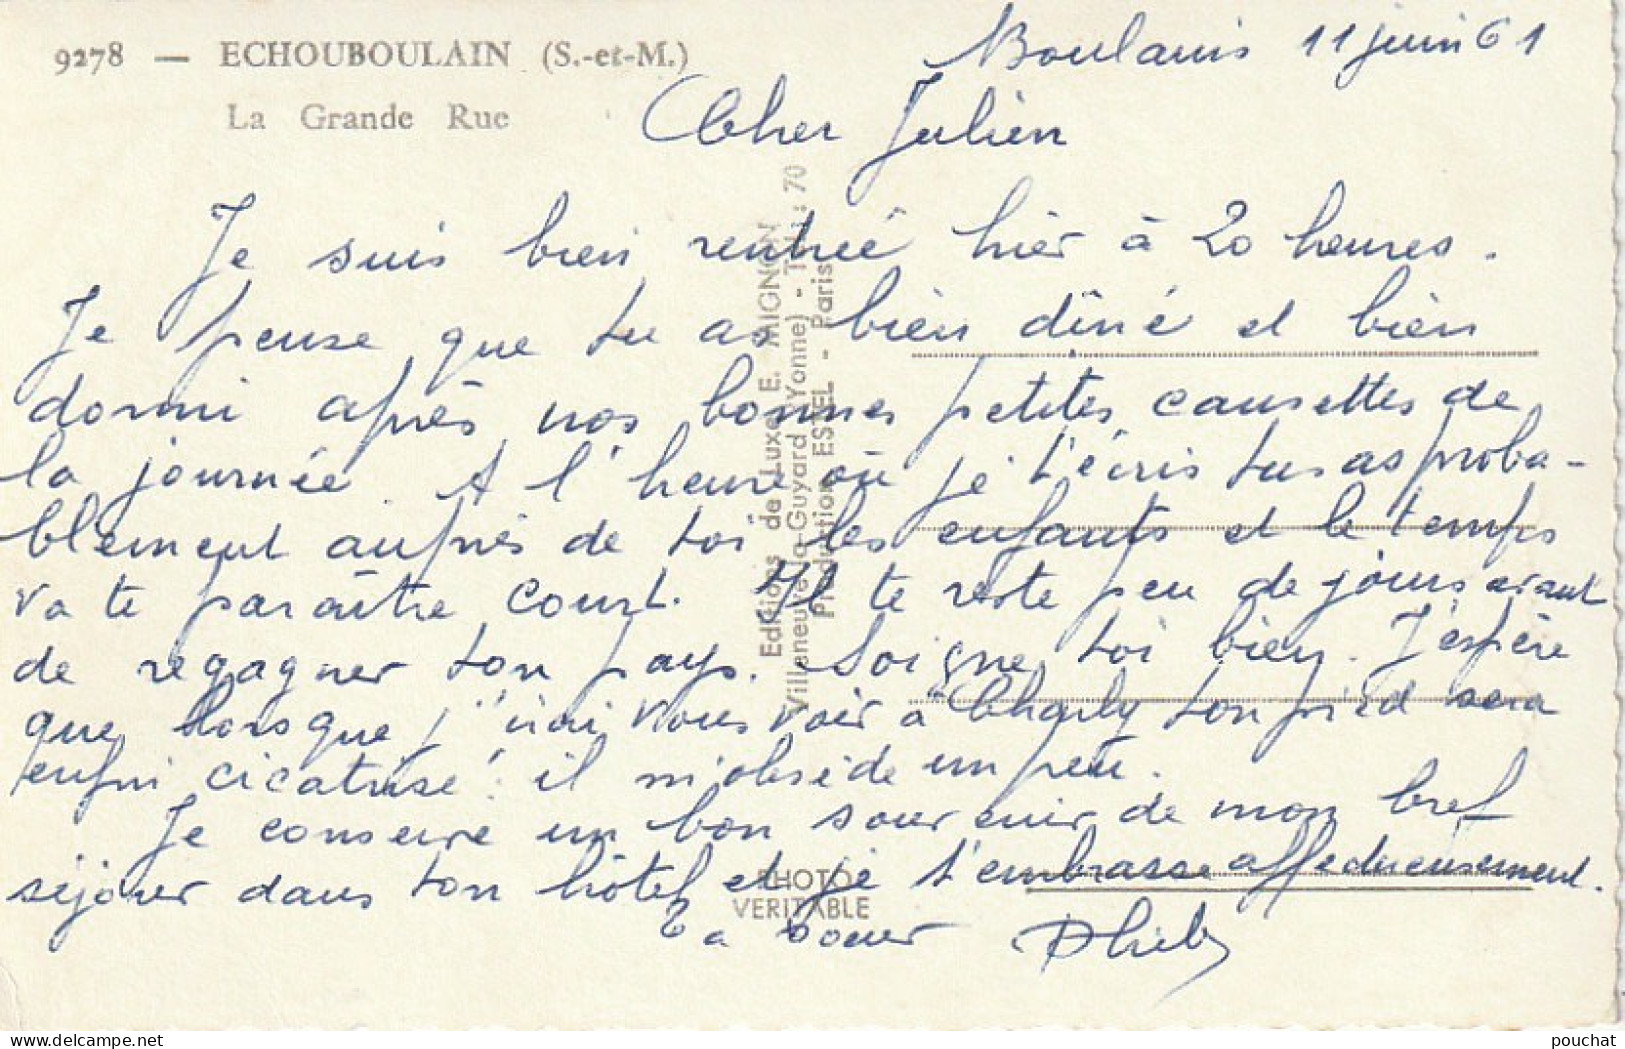 9278 — ECHOUBOULAIN (S.-et-M.)
La Grande Rue
Boulains 11 juin 61
Cher Julien
Je suis bien rentrée hier à 20 heures.
Je pense que tu as bien dîné et bien
dormi après nos bonnes petites causettes de
la journée. A l'heure où je t'écris tu as proba-
blement auprès de toi les enfants et le temps
va te paraître court. Il te reste peu de jours avant
de regagner ton pays. Soigne toi bien. J'espère
que lorsque j'irai vous voir à Charly ton pied sera
enfin cicatrisé! il m'obsède un peu.
Je conserve un bon souvenir de mon bref
séjour dans ton hôtel et je t'embrasse affectueusement.
Ta soeur
Editions de Luxe E. MIGNON
Villeneuve-la-Guyard (Yonne) - Tél. : 70
Production ESTEL - Paris
PHOTO
VERITABLE
delcampe.net
pouchat